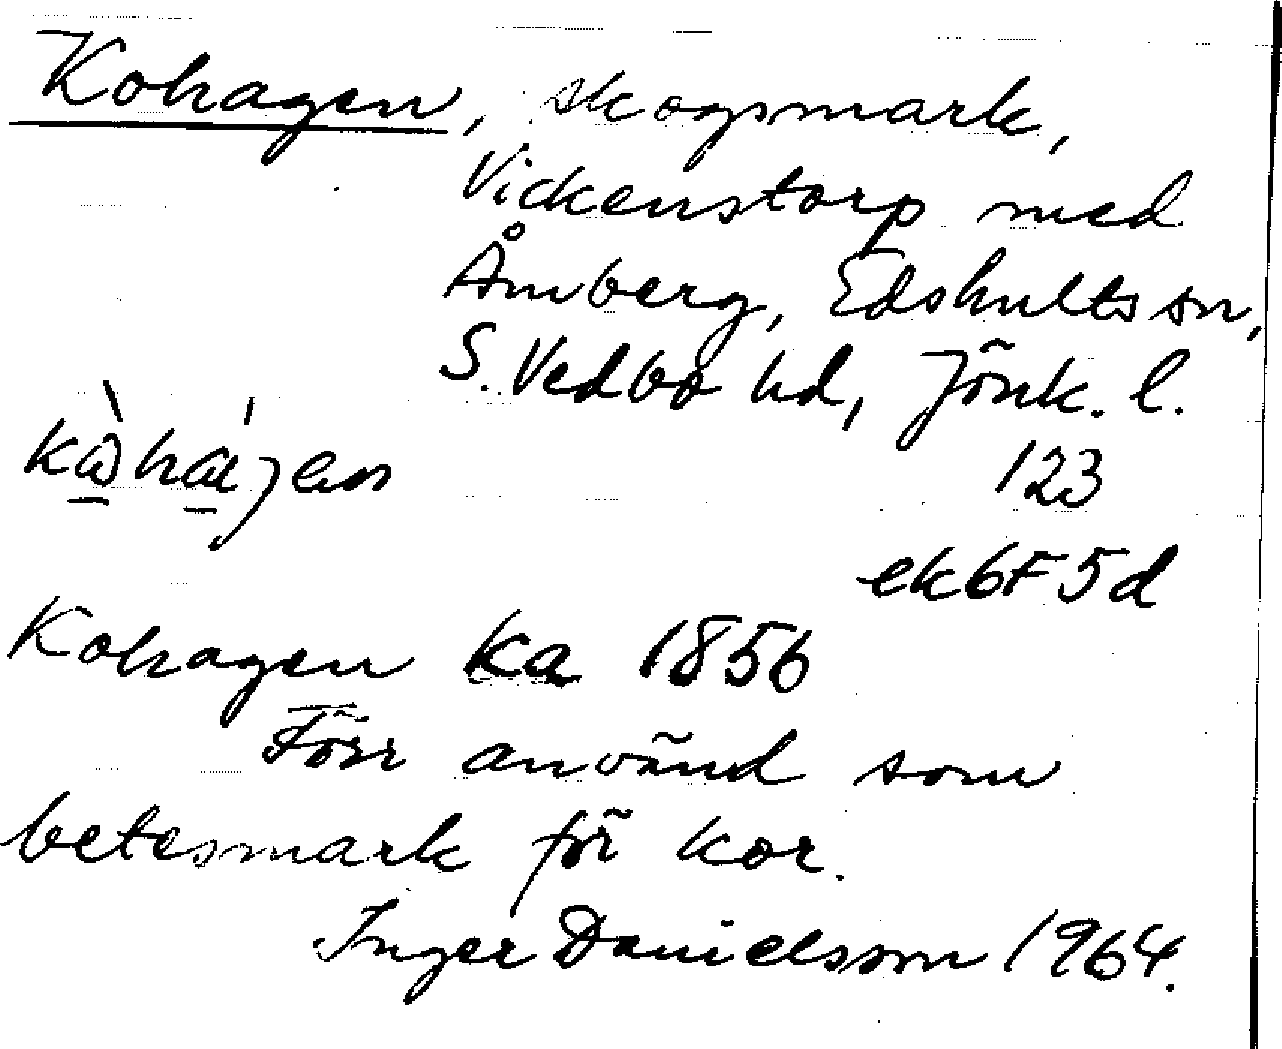 Kohagen, skogsmark,
Vickenstorp med
Åmberg, Edshults sn,
S. Vedbo hd, Jönk. l.
123
ek 6F5d
Kohagen ka 1856
Förr använd som
betesmark för kor.
Inger Danielsson 1964.